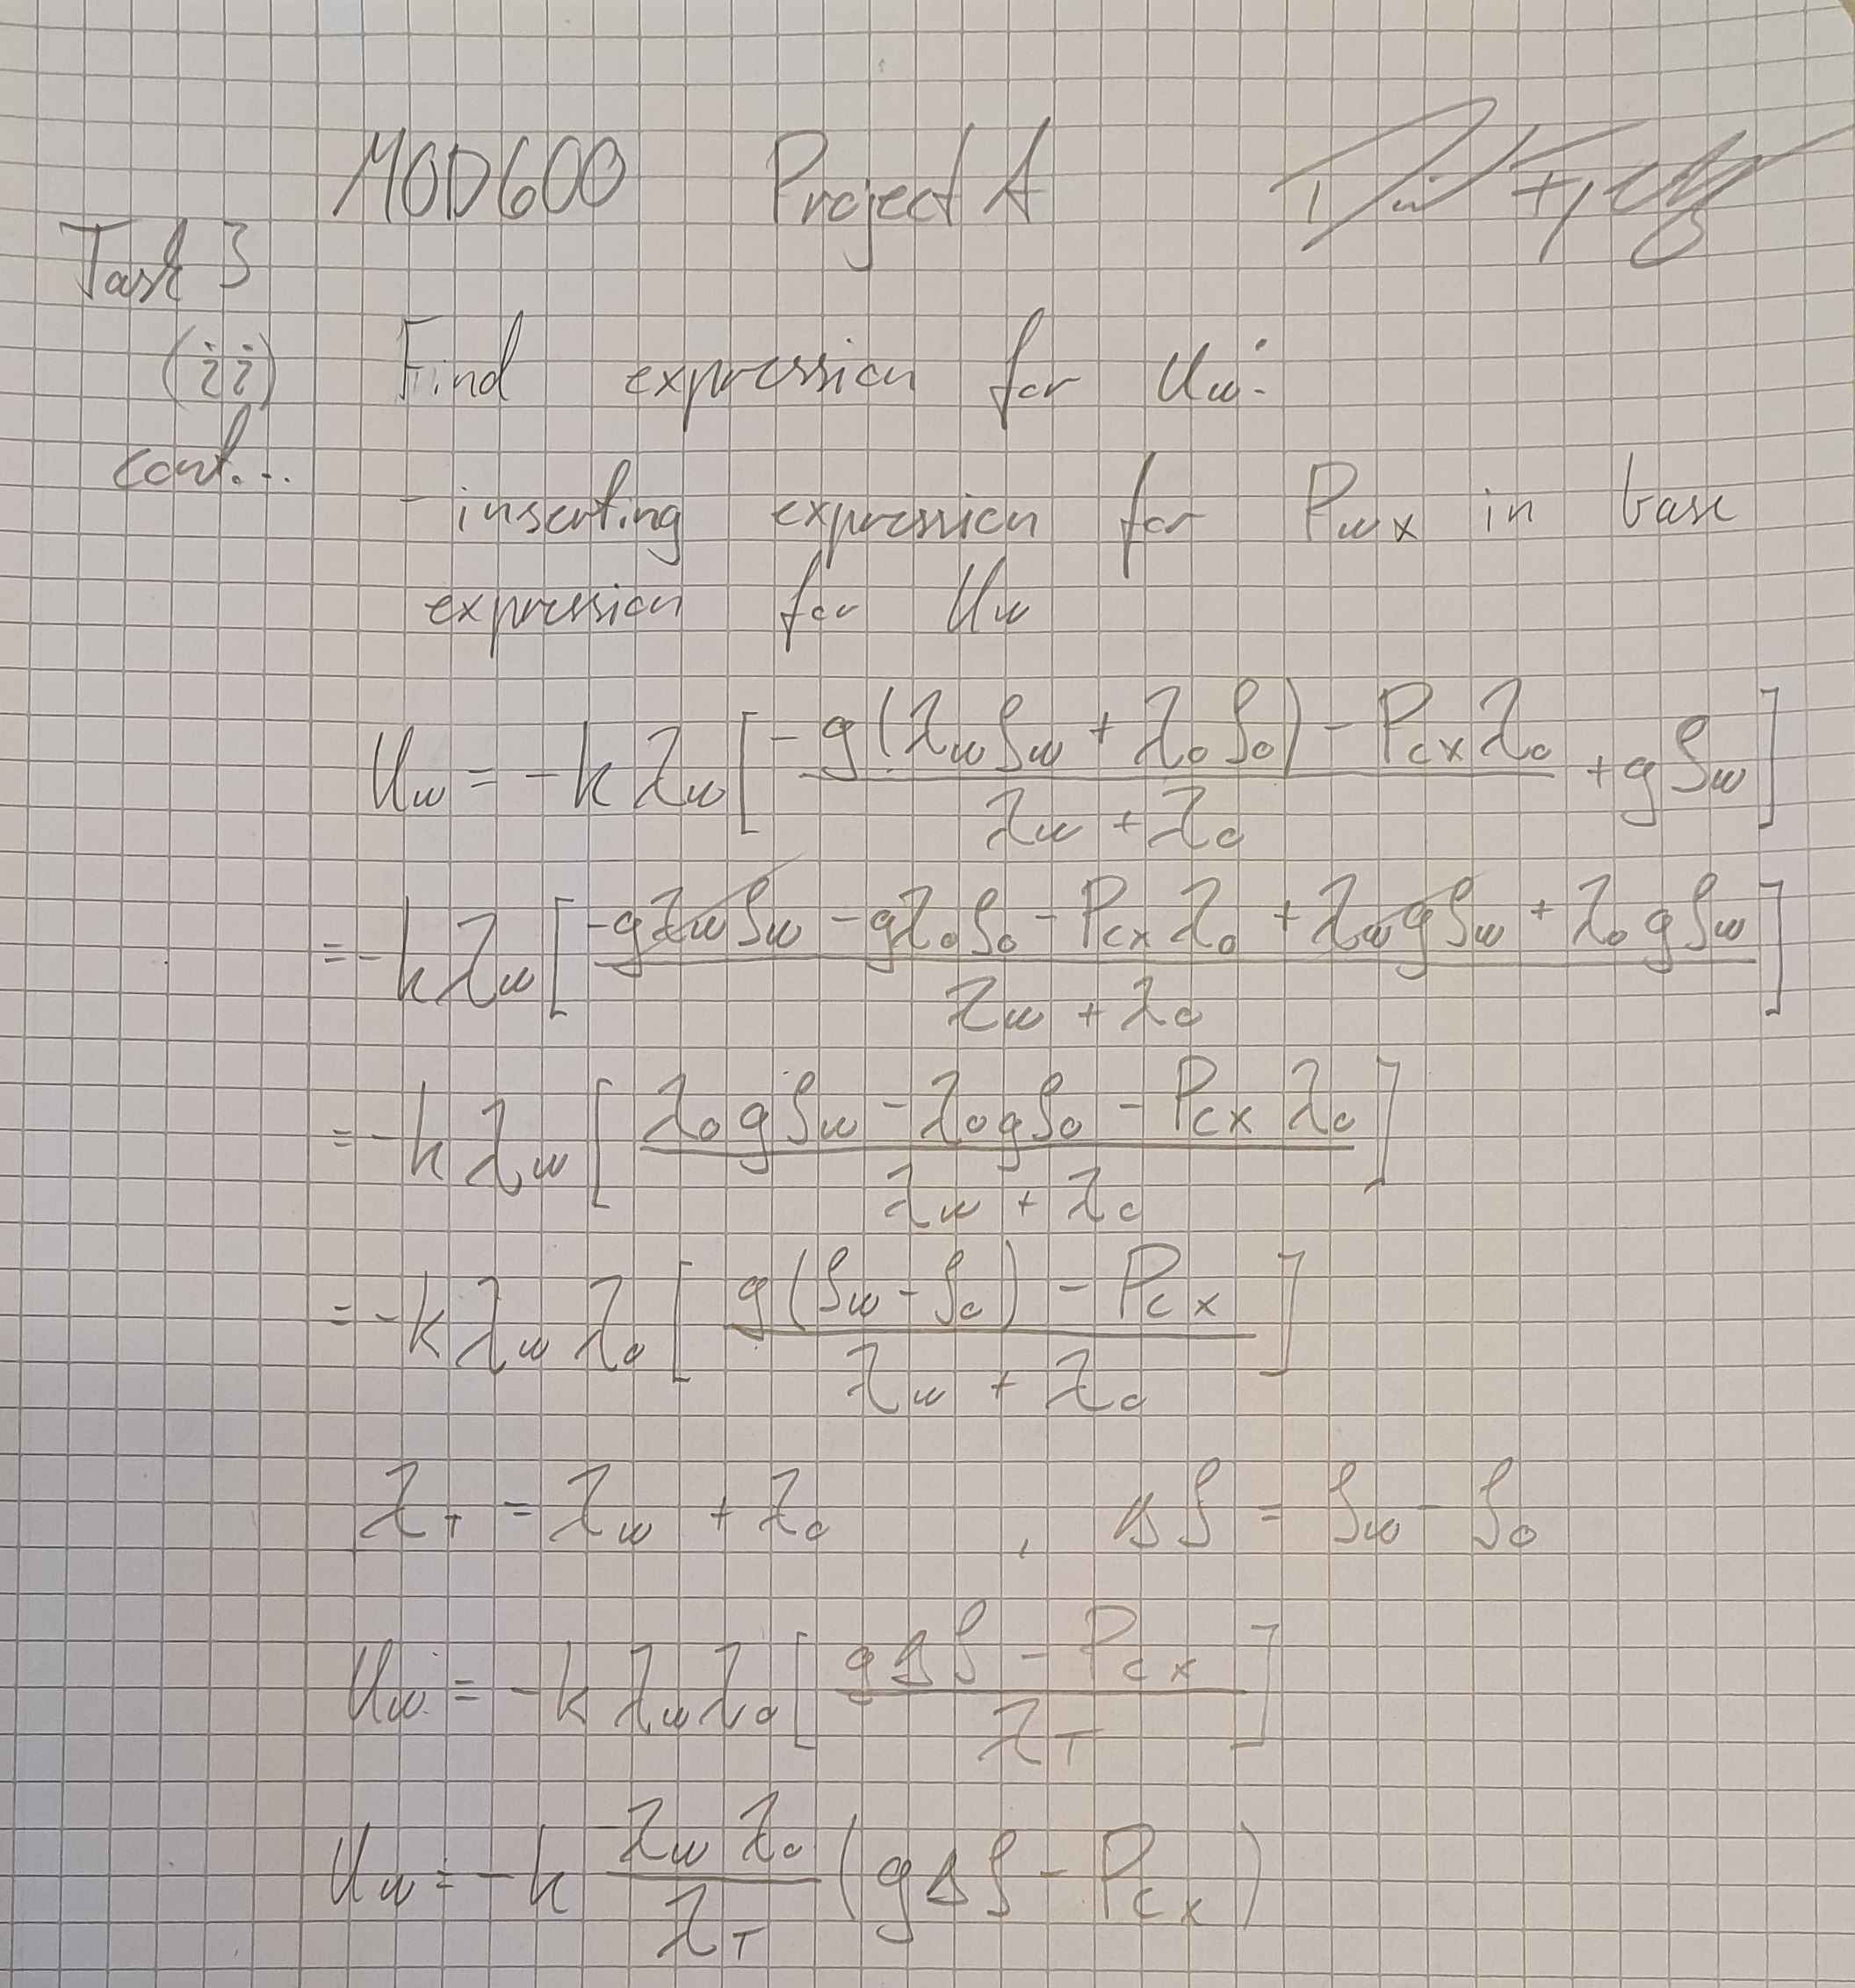 MOD600 Project A
Task 3
(ii) Find expression for Uw:
cont... - inserting expression for Pwx in base
expression for Uw
Uw = -kλw[(-g(λwρw + λoρo) - Pcxλo)/(λw + λo) + gρw]
= -kλw[(-gλwρw - gλoρo - Pcxλo + λwgρw + λogρw)/(λw + λo)]
= -kλw[(λogρw - λogρo - Pcxλo)/(λw + λo)]
= -kλwλo[(g(ρw - ρo) - Pcx)/(λw + λo)]
λT = λw + λo , Δρ = ρw - ρo
Uw = -kλwλo[(gΔρ - Pcx)/λT]
Uw = -k (λwλo)/λT (gΔρ - Pcx)